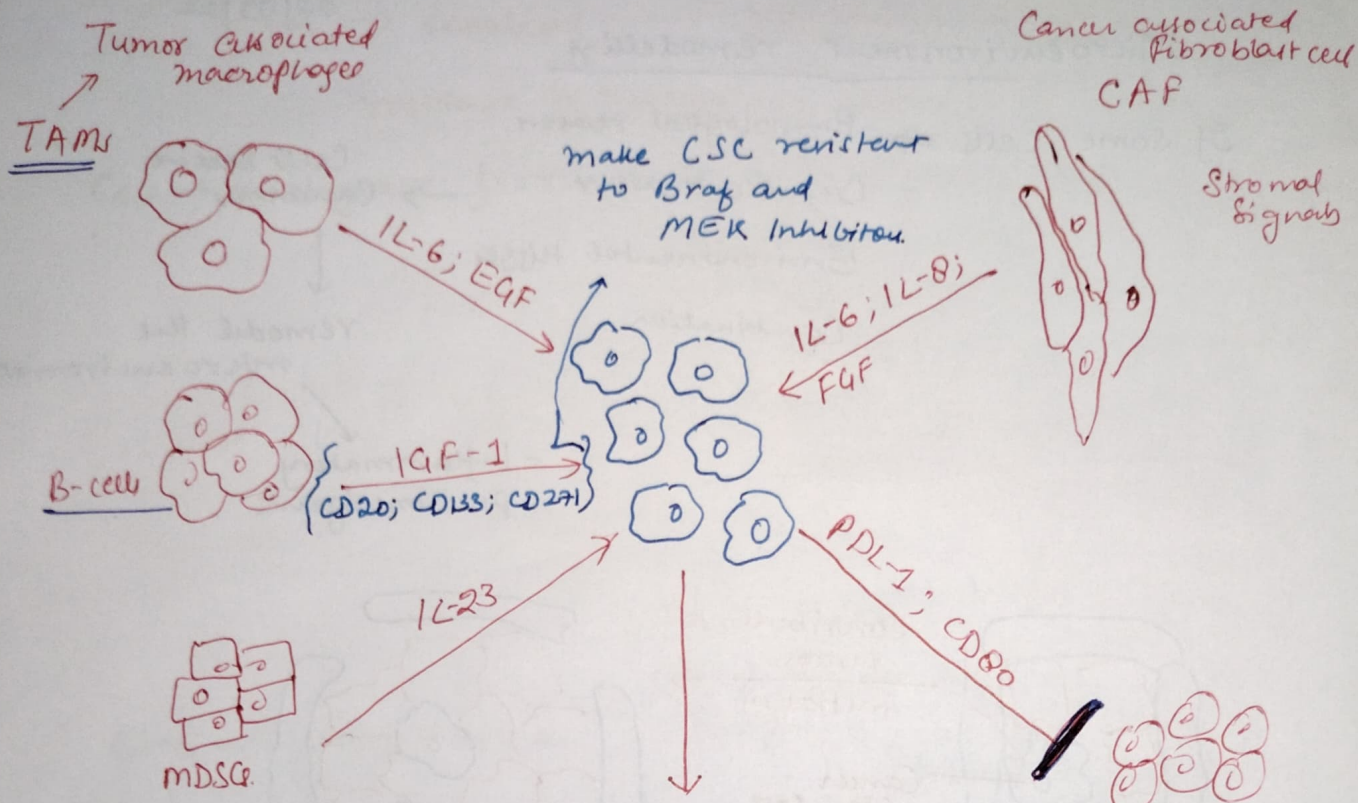 Tumor associated
macrophages
TAMs
Cancer associated
Fibroblast cell
CAF
Stromal
Signals
make CSC resistant
to Braf and
MEK Inhibitors.
IL-6; EGF
IL-6; IL-8;
FGF
B-cells
IGF-1
CD20; CD133; CD271
IL-23
PDL-1; CD80
MDSCs.